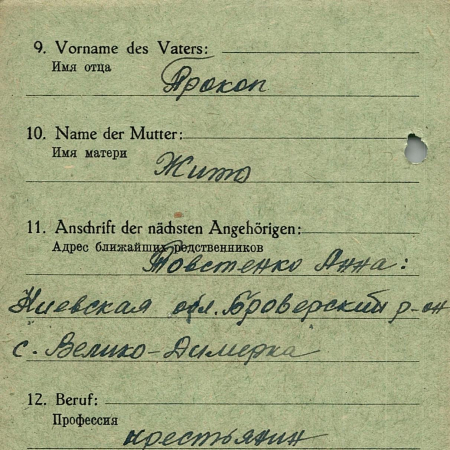 9. Vorname des Vaters:
Имя отца
Прокоп
10. Name der Mutter:
Имя матери
11. Anschrift der nächsten Angehörigen:
Адрес ближайших родственников
Товстенко Анна:
Киевская обл. Броверский р-он
с. Велико-Димерка
12. Beruf:
Профессия
крестьянин